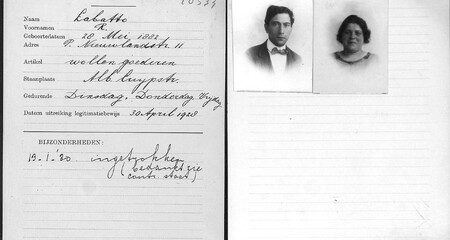 Naam Labatto
Voornamen R.
Geboortedatum 28 Mei, 1882
Adres P. Nieuwlandstr. 11
Artikel wollen goederen
Staanplaats Alb. Cuypstr.
Gedurende Dinsdag, Donderdag, Vrijdag
Datum uitreiking legitimatiebewijs 30 April 1923
BIJZONDERHEDEN:
19.1.'30 ingetrokken
(bedankt zie
contr. staat)